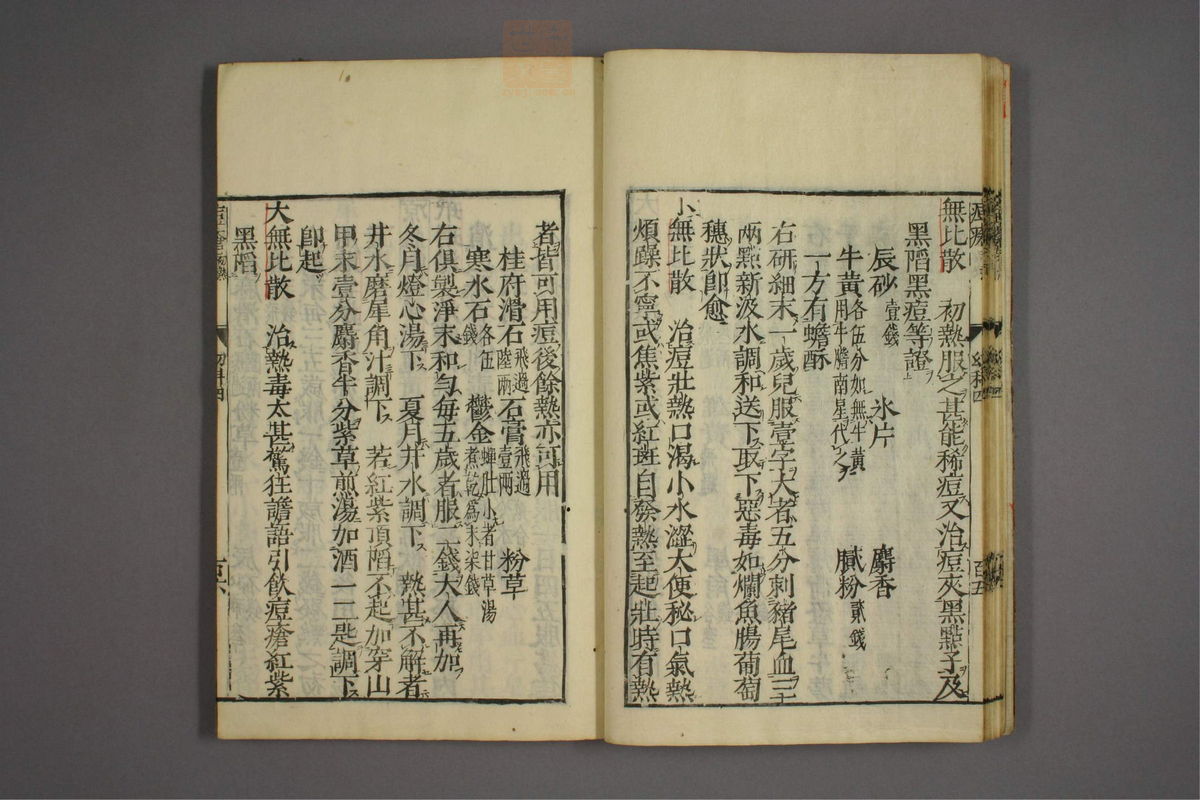 無比散 初熱服之甚能稀痘又治痘夾黑㸃子及
黑䧟黑痘等證
辰砂壹錢 氷片 麝香
牛黃各伍分如無牛黃用牛膽南星代之 膩粉貳錢
一方有蟾酥
右研細末一歲兒服壹字大者五分刺豬尾血三
兩㸃新汲水調和送下取下惡毒如爛魚腸葡萄
穗狀卽愈
小無比散 治痘壯熱口渴小水澀大便秘口氣熱
煩躁不寧或焦紫或紅斑自發熱至起壯時有熱
百五
者皆可用痘後餘熱亦可用
桂府滑石飛過陸兩 石膏飛過壹兩 粉草
寒水石各伍錢 鬱金蟬肚小者甘草湯煮乾爲末柒錢
右俱製淨末和勻每五歲者服二錢大人再加
冬月燈心湯下 夏月井水調下 熱甚不解者
井水磨犀角汁調下 若紅紫頂䧟不起加穿山
甲末壹分麝香半分紫草煎湯加酒一二匙調下
卽起
大無比散 治熱毒太甚驚狂譫語引飲痘瘡紅紫
黑䧟